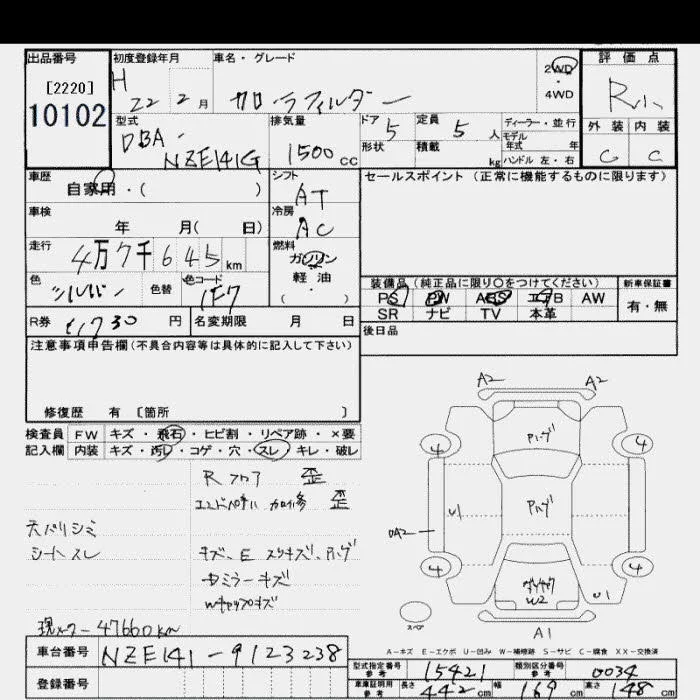 出品番号 初度登録年月 車名・グレード 2WD 評価点
[2220] H 4WD
10102 22 2月 カローラフィルダー R
型式 排気量 ドア 定員 ディーラー・並行 外装 内装
DBA- 5 5人 モデル
NZE141G 1500cc 形状 積載 年式 年 C C
kg ハンドル 左・右
車歴 シフト セールスポイント(正常に機能するものに限ります)
自家用・( ) AT
車検 冷房
年 月( 日) AC
走行 燃料
4万7千645km ガソリン
色 色替 色コード 軽・油 装備品(純正品に限り○をつけてください) 新車保証書
シルバー 1F7 ・( ) PS PW ABS エアB AW 有・無
SR ナビ TV 本革
R券 730円 名変期限 月 日 後日品
注意事項申告欄(不具合内容等は具体的に記入して下さい)
修復歴 有 [箇所 ]
検査員 FW キズ・飛石・ヒビ割・リペア跡・×要
記入欄 内装 キズ・汚レ・コゲ・穴・スレ・キレ・破レ
A2 A2
Rフロア 歪
エンドパネル 歪
天バリシミ
シートスレ キズ、E スリキズ、
ドミラーキズ
Wキャップキズ
現メーター 47660km
4 4
U1
4 4
W2 U1
スペア
A1
A-キズ E-エクボ U-凹み W-補修跡 S-サビ C-腐食 XX-交換済
車台番号 NZE141-9123238
登録番号
型式指定番号 参考 15421 類別区分番号 参考 0034
車庫証明用 参考 長さ 442cm 幅 169cm 高さ 148cm